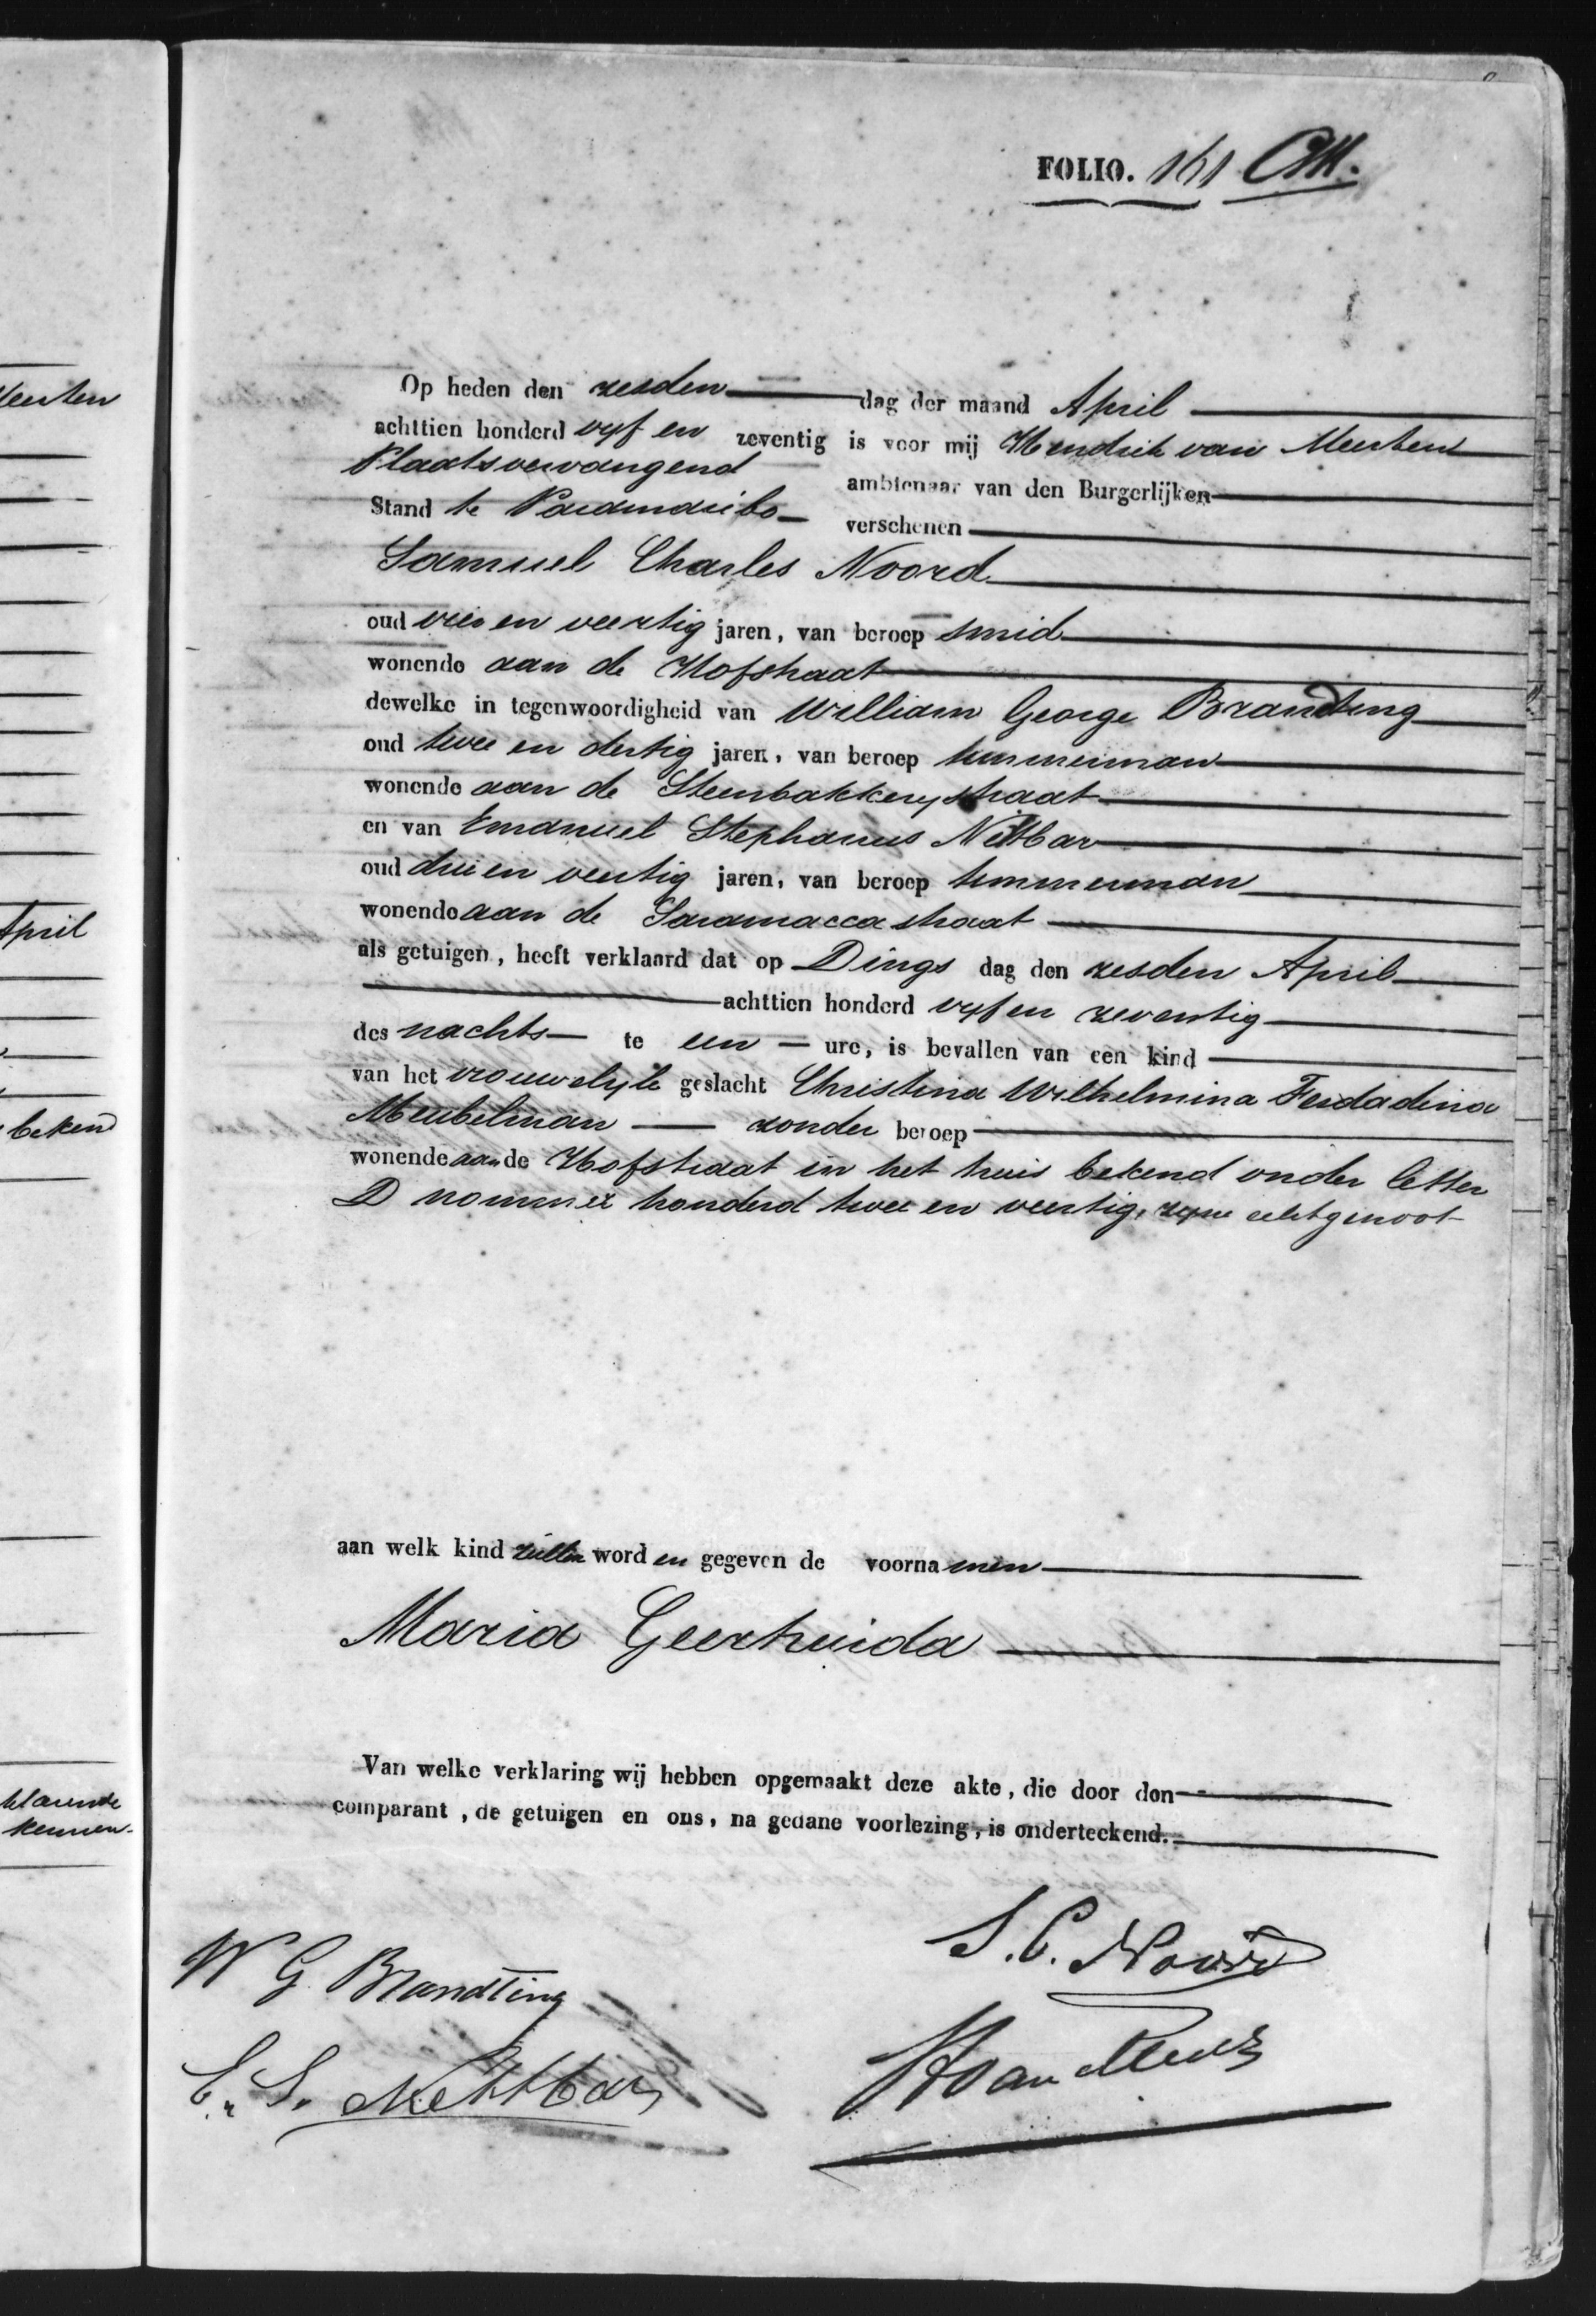 eerten
April
bekend
klarende
kennen.
FOLIO. 161
Op heden den zesden dag der maand April
achttien honderd vyf en zeventig is voor mij Hendrik van Meerten
Plaatsvervangend ambtenaar van den Burgerlijken
Stand te Paramaribo verschenen
Samuel Charles Noord
oud en veertig jaren, van beroep smid
wonende aan de Hofstraat
dewelke in tegenwoordigheid van William George Brandting
oud twee en dertig jaren, van beroep timmerman
wonende aan de Steenbakkerystraat
en van Emanuel Stephanus Nettbar
oud drie en veertig jaren, van beroep timmerman
wonende aan de Saramacca straat
als getuigen, heeft verklaard dat op Dings dag den zesden April
achttien honderd vyf en zeventig
des nachts te een ure, is bevallen van een kind
van het vrouwelyk geslacht Christina Wilhelmina Ferdadina
Meubelman zonder beroep
wonende aan de Hofstraat in het huis bekend onder letter
D nommer honderd twee en veertig, zyne echtgenoot
aan welk kind zullen worden gegeven de voornamen
Maria Geertruida
Van welke verklaring wij hebben opgemaakt deze akte, die door den
comparant, de getuigen en ons, na gedane voorlezing, is onderteekend.
S. C. Noord
W G Brandting
HvanMeerten
E. S. Nettbar